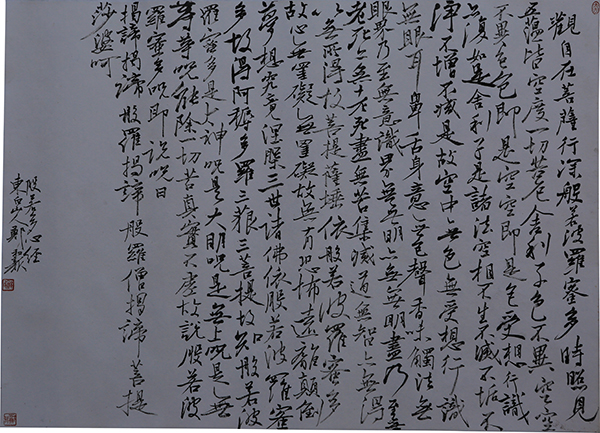 觀自在菩薩行深般若波羅蜜多時照見
五蘊皆空度一切苦厄舍利子色不異空空
不異色色即是空空即是色受想行識
亦復如是舍利子是諸法空相不生不滅不垢不
淨不增不減是故空中無色無受想行識
無眼耳鼻舌身意無色聲香味觸法無
眼界乃至無意識界無無明亦無無明盡乃至無
老死亦無老死盡無苦集滅道無智亦無得
以無所得故菩提薩埵依般若波羅蜜多
故心無罣礙無罣礙故無有恐怖遠離顛倒
夢想究竟涅槃三世諸佛依般若波羅蜜
多故得阿耨多羅三藐三菩提故知般若波
羅蜜多是大神呪是大明呪是無上呪是無
等等呪能除一切苦真實不虛故說般若波
羅蜜多呪即說呪曰
揭諦揭諦般羅揭諦般羅僧揭諦菩提
莎婆呵
般若多心經
鄭